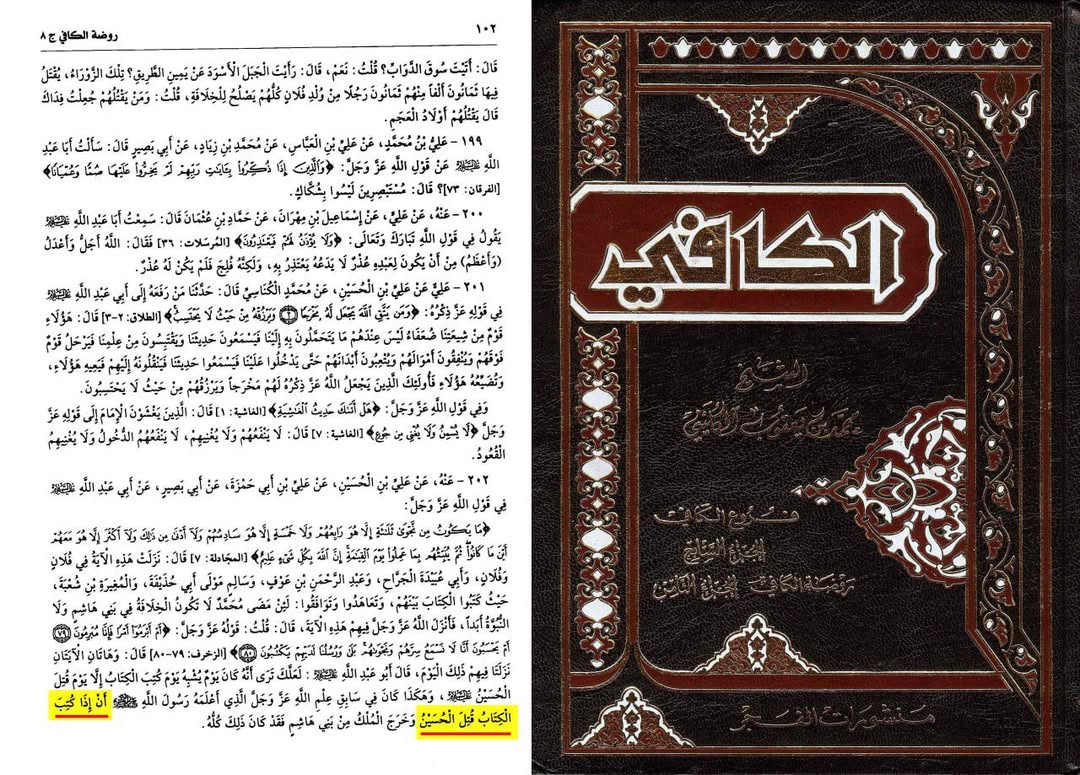 ١٠٢
روضة الكافي ج ٨
قَالَ: أَتَيْتَ سُوقَ الدَّوَابِّ؟ قُلْتُ: نَعَمْ، قَالَ: رَأَيْتَ الْجَبَلَ الْأَسْوَدَ عَنْ يَمِينِ الطَّرِيقِ؟ تِلْكَ الزَّوْرَاءُ، يُقْتَلُ
فِيهَا ثَمَانُونَ أَلْفاً مِنْهُمْ ثَمَانُونَ رَجُلًا مِنْ وُلْدِ فُلَانٍ كُلُّهُمْ يَصْلُحُ لِلْخِلَافَةِ، قُلْتُ: وَمَنْ يَقْتُلُهُمْ جُعِلْتُ فِدَاكَ
قَالَ يَقْتُلُهُمْ أَوْلَادُ الْعَجَمِ.
١٩٩ - عَلِيُّ بْنُ مُحَمَّدٍ، عَنْ عَلِيِّ بْنِ الْعَبَّاسِ، عَنْ مُحَمَّدِ بْنِ زِيَادٍ، عَنْ أَبِي بَصِيرٍ قَالَ: سَأَلْتُ أَبَا عَبْدِ
اللَّهِ عَنْ قَوْلِ اللَّهِ عَزَّ وَجَلَّ: ﴿وَالَّذِينَ إِذَا ذُكِّرُوا بِآيَاتِ رَبِّهِمْ لَمْ يَخِرُّوا عَلَيْهَا صُمًّا وَعُمْيَانًا﴾
[الفرقان: ٧٣]؟ قَالَ: مُسْتَبْصِرِينَ لَيْسُوا بِشُكَّاكٍ.
٢٠٠ - عَنْهُ، عَنْ عَلِيٍّ، عَنْ إِسْمَاعِيلَ بْنِ مِهْرَانَ، عَنْ حَمَّادِ بْنِ عُثْمَانَ قَالَ: سَمِعْتُ أَبَا عَبْدِ اللَّهِ
يَقُولُ فِي قَوْلِ اللَّهِ تَبَارَكَ وَتَعَالَى: ﴿وَلَا يُؤْذَنُ لَهُمْ فَيَعْتَذِرُونَ﴾ [المُرسَلات: ٣٦] فَقَالَ: اللَّهُ أَجَلُّ وَأَعْدَلُ
(وَأَعْظَمُ) مِنْ أَنْ يَكُونَ لِعَبْدِهِ عُذْرٌ لَا يَدَعُهُ يَعْتَذِرُ بِهِ، وَلَكِنَّهُ فُلِجَ فَلَمْ يَكُنْ لَهُ عُذْرٌ.
٢٠١ - عَلِيٌّ عَنْ عَلِيِّ بْنِ الْحُسَيْنِ، عَنْ مُحَمَّدٍ الْكُنَاسِيِّ قَالَ: حَدَّثَنَا مَنْ رَفَعَهُ إِلَى أَبِي عَبْدِ اللَّهِ
فِي قَوْلِهِ عَزَّ ذِكْرُهُ: ﴿وَمَن يَتَّقِ اللَّهَ يَجْعَل لَّهُ مَخْرَجًا ٢ وَيَرْزُقْهُ مِنْ حَيْثُ لَا يَحْتَسِبُ﴾ [الطلاق: ٢-٣] قَالَ: هَؤُلَاءِ
قَوْمٌ مِنْ شِيعَتِنَا ضُعَفَاءُ لَيْسَ عِنْدَهُمْ مَا يَتَحَمَّلُونَ بِهِ إِلَيْنَا فَيَسْمَعُونَ حَدِيثَنَا وَيَقْتَبِسُونَ مِنْ عِلْمِنَا فَيَرْحَلُ قَوْمٌ
فَوْقَهُمْ وَيُنْفِقُونَ أَمْوَالَهُمْ وَيُتْعِبُونَ أَبْدَانَهُمْ حَتَّى يَدْخُلُوا عَلَيْنَا فَيَسْمَعُوا حَدِيثَنَا فَيَنْقُلُونَهُ إِلَيْهِمْ فَيَعِيهِ هَؤُلَاءِ،
وَتُضَيِّعُهُ هَؤُلَاءِ فَأُولَئِكَ الَّذِينَ يَجْعَلُ اللَّهُ عَزَّ ذِكْرُهُ لَهُمْ مَخْرَجاً وَيَرْزُقُهُمْ مِنْ حَيْثُ لَا يَحْتَسِبُونَ.
وَفِي قَوْلِ اللَّهِ عَزَّ وَجَلَّ: ﴿هَلْ أَتَاكَ حَدِيثُ الْغَاشِيَةِ﴾ [الغاشية: ١] قَالَ: الَّذِينَ يَغْشَوْنَ الْإِمَامَ إِلَى قَوْلِهِ عَزَّ
وَجَلَّ ﴿لَا يُسْمِنُ وَلَا يُغْنِي مِن جُوعٍ﴾ [الغاشية: ٧] قَالَ: لَا يَنْفَعُهُمْ وَلَا يُغْنِيهِمْ، لَا يَنْفَعُهُمُ الدُّخُولُ وَلَا يُغْنِيهِمُ
الْقُعُودُ.
٢٠٢ - عَنْهُ، عَنْ عَلِيِّ بْنِ الْحُسَيْنِ، عَنْ عَلِيِّ بْنِ أَبِي حَمْزَةَ، عَنْ أَبِي بَصِيرٍ، عَنْ أَبِي عَبْدِ اللَّهِ
فِي قَوْلِ اللَّهِ عَزَّ وَجَلَّ:
﴿مَا يَكُونُ مِن نَّجْوَى ثَلَاثَةٍ إِلَّا هُوَ رَابِعُهُمْ وَلَا خَمْسَةٍ إِلَّا هُوَ سَادِسُهُمْ وَلَا أَدْنَى مِن ذَلِكَ وَلَا أَكْثَرَ إِلَّا هُوَ مَعَهُمْ
أَيْنَ مَا كَانُوا ثُمَّ يُنَبِّئُهُم بِمَا عَمِلُوا يَوْمَ الْقِيَامَةِ إِنَّ اللَّهَ بِكُلِّ شَيْءٍ عَلِيمٌ﴾ [المجَادلة: ٧] قَالَ: نَزَلَتْ هَذِهِ الْآيَةُ فِي فُلَانٍ
وَفُلَانٍ، وَأَبِي عُبَيْدَةَ الْجَرَّاحِ، وَعَبْدِ الرَّحْمَنِ بْنِ عَوْفٍ، وَسَالِمٍ مَوْلَى أَبِي حُذَيْفَةَ، وَالْمُغِيرَةِ بْنِ شُعْبَةَ،
حَيْثُ كَتَبُوا الْكِتَابَ بَيْنَهُمْ، وَتَعَاهَدُوا وَتَوَافَقُوا: لَئِنْ مَضَى مُحَمَّدٌ لَا تَكُونُ الْخِلَافَةُ فِي بَنِي هَاشِمٍ وَلَا
النُّبُوَّةُ أَبَداً، فَأَنْزَلَ اللَّهُ عَزَّ وَجَلَّ فِيهِمْ هَذِهِ الْآيَةَ، قَالَ: قُلْتُ: قَوْلُهُ عَزَّ وَجَلَّ: ﴿أَمْ أَبْرَمُوا أَمْرًا فَإِنَّا مُبْرِمُونَ ٧٩
أَمْ يَحْسَبُونَ أَنَّا لَا نَسْمَعُ سِرَّهُمْ وَنَجْوَاهُم بَلَى وَرُسُلُنَا لَدَيْهِمْ يَكْتُبُونَ ٨٠﴾ [الزخرف: ٧٩-٨٠] قَالَ: وَهَاتَانِ الْآيَتَانِ
نَزَلَتَا فِيهِمْ ذَلِكَ الْيَوْمَ، قَالَ أَبُو عَبْدِ اللَّهِ: لَعَلَّكَ تَرَى أَنَّهُ كَانَ يَوْمٌ يُشْبِهُ يَوْمَ كَتْبِ الْكِتَابِ إِلَّا يَوْمَ قُتِلَ
الْحُسَيْنُ، وَهَكَذَا كَانَ فِي سَابِقِ عِلْمِ اللَّهِ عَزَّ وَجَلَّ الَّذِي أَعْلَمَهُ رَسُولَ اللَّهِ أَنْ إِذَا كُتِبَ
الْكِتَابُ قُتِلَ الْحُسَيْنُ وَخَرَجَ الْمُلْكُ مِنْ بَنِي هَاشِمٍ فَقَدْ كَانَ ذَلِكَ كُلُّهُ.
الكافي
الشيخ
محمد بن يعقوب الكليني
فروع الكافي
الجزء السابع
روضة الكافي الجزء الثامن
منشورات الفجر